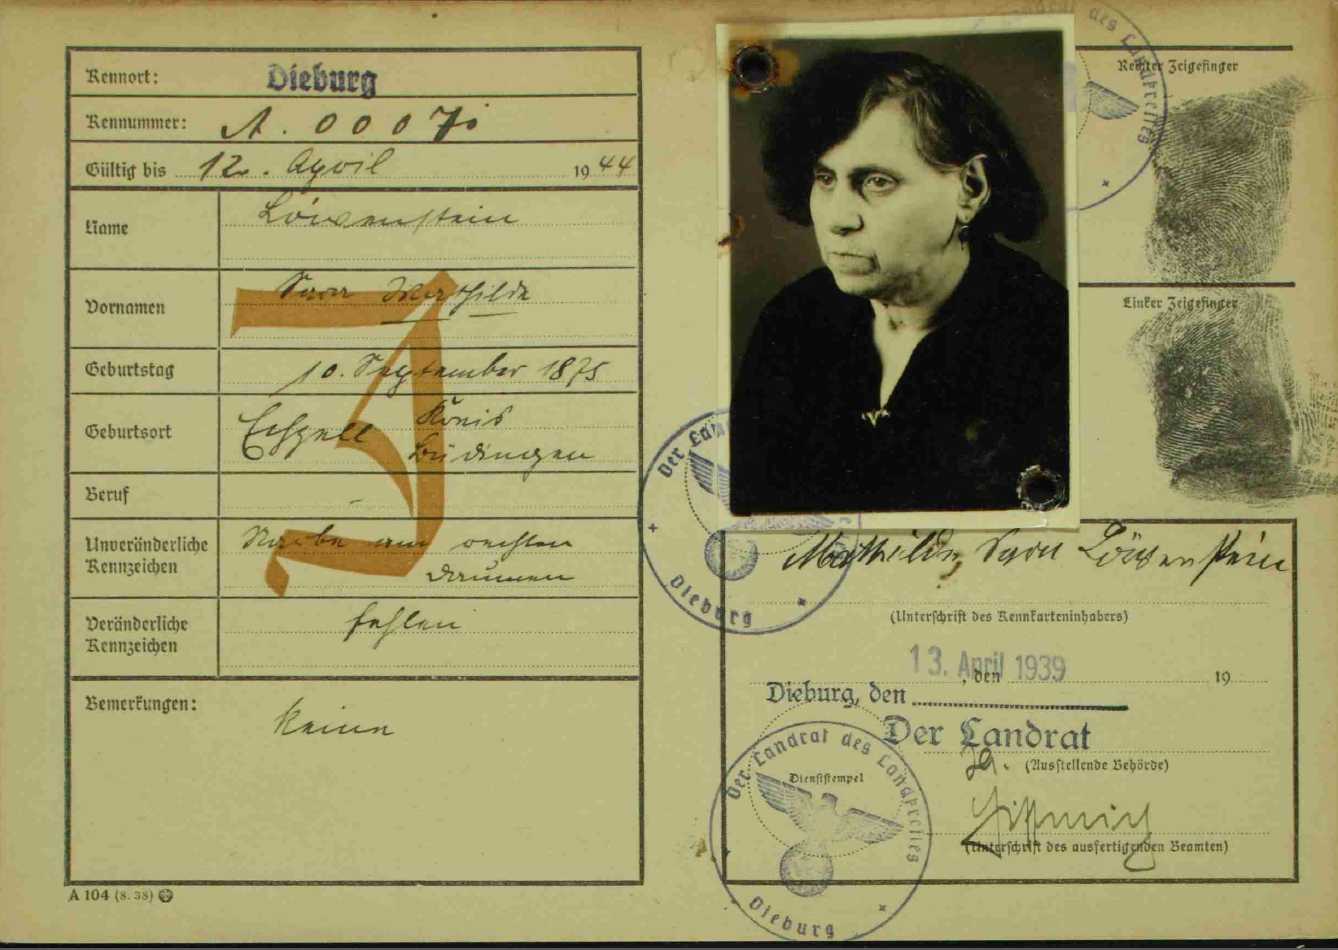 Kennort: Dieburg
Kennummer: A. 00071
Gültig bis 12. April 1944
Name Löwenstein
Vornamen Sara Mathilde
Geburtstag 10. September 1875
Geburtsort Echzell Kreis
Büdingen
Beruf -
Unveränderliche Kennzeichen Narbe am rechten
Daumen
Veränderliche Kennzeichen fehlen
Bemerkungen: Keine
J
A 104 (8. 38)
Rechter Zeigefinger
Linker Zeigefinger
des Landkreises
Der Lan
Dieburg
Mathilde Sara Löwenstein
(Unterschrift des Kennkarteninhabers)
13. April 1939
, den 19
Dieburg, den
Der Landrat
(Ausstellende Behörde)
Dienststempel
Der Landrat des Landkreises
Dieburg
(Unterschrift des ausfertigenden Beamten)